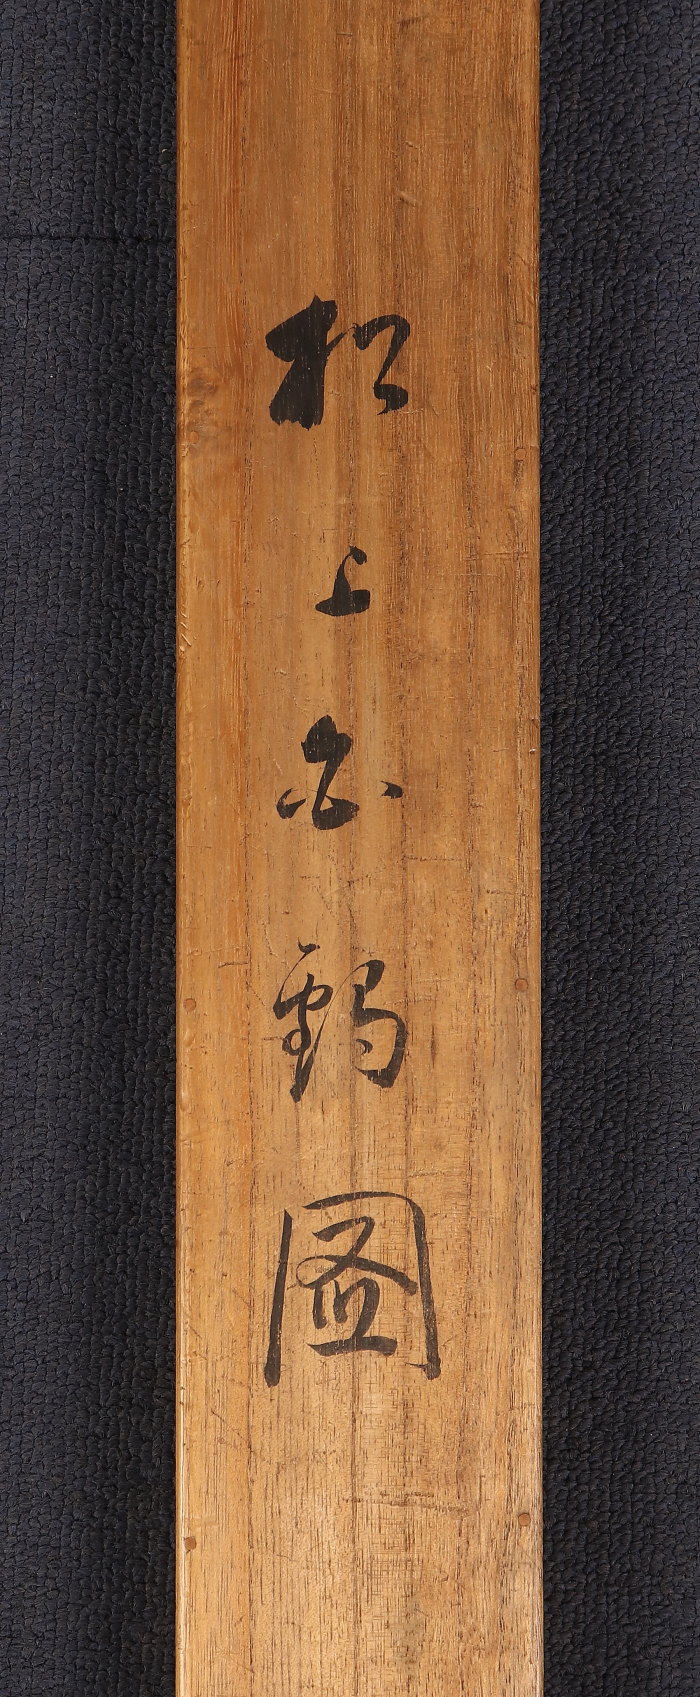 松上白鶴圖